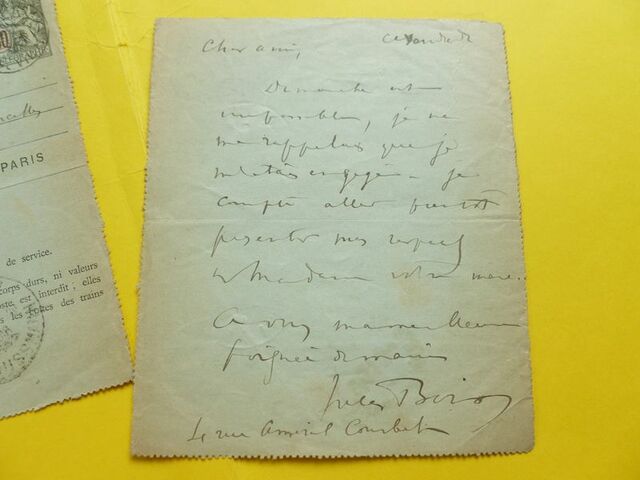 PARIS
de service.
corps durs, ni valeurs
oste, est interdit ; elles
s les boîtes des trains
Cher ami, ce vendredi
Dimanche est
impossible, je ne
me rappelais que je
m'étais engagé. Je
compte aller bientôt
présenter mes respects
à Madame votre mère.
A vous ma meilleure
poignée de mains
Jules Bois
rue Amiral Courbet